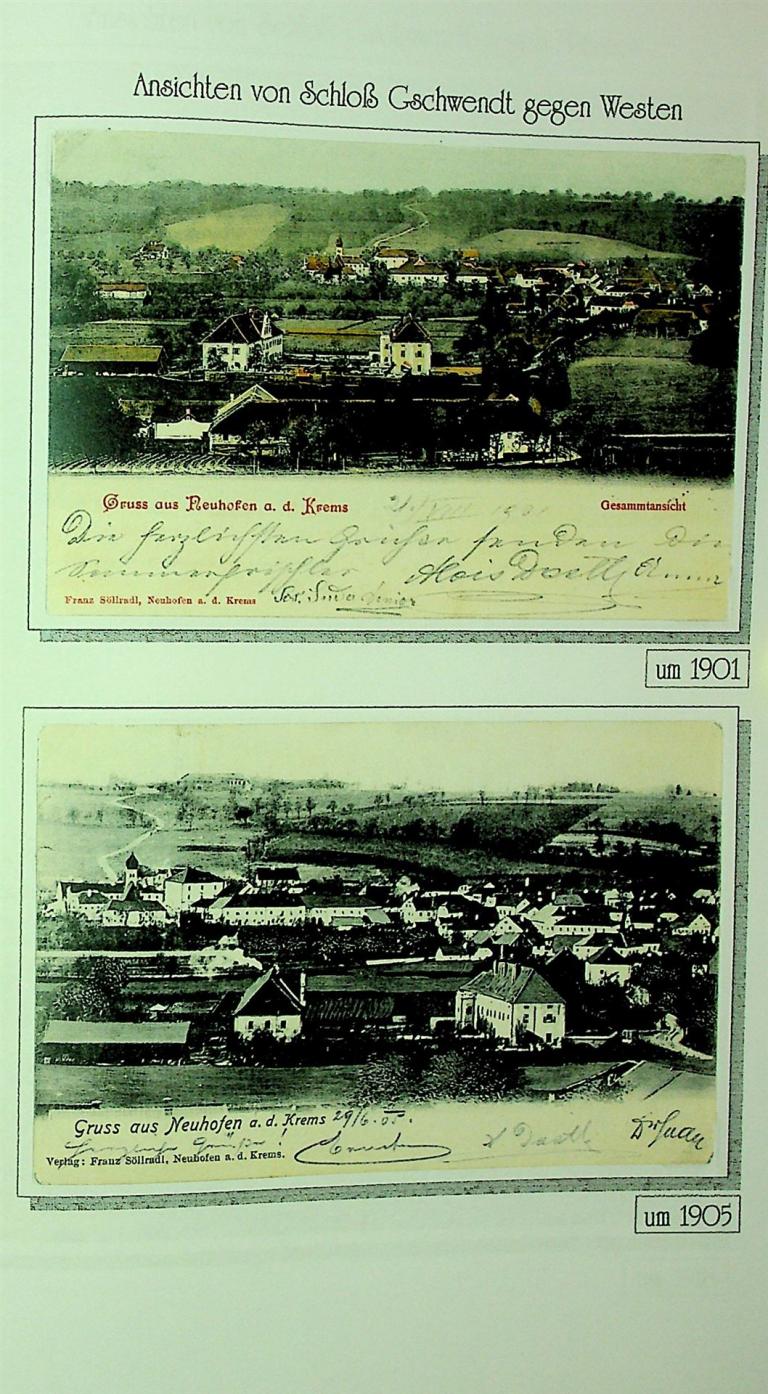 Ansichten von Schloß Gschwendt gegen Westen
Gruss aus Neuhofen a. d. Krems
Gesammtansicht
Die herzlichsten Grüße senden die
Sommerfrischler Alois
Franz Söllradl, Neuhofen a. d. Krems
um 1901
Gruss aus Neuhofen a. d. Krems 29/6. 05.
Herzliche Grüße!
Verlag: Franz Söllradl, Neuhofen a. d. Krems.
um 1905